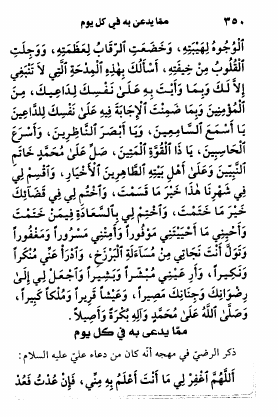 ٣٥٠ ممّا يدعى به في كل يوم
الْوُجُوهُ لِهَيْبَتِهِ، وَخَضَعَتِ الرِّقَابُ لِعَظَمَتِهِ، وَوَجِلَتِ
الْقُلُوبُ مِنْ خِيفَتِهِ، أَسْأَلُكَ بِهٰذِهِ الْمِدْحَةِ الَّتِي لَا تَنْبَغِي
إِلَّا لَكَ وَبِمَا وَأَيْتَ بِهِ عَلَىٰ نَفْسِكَ لِدَاعِيكَ، مِنَ
الْمُؤْمِنِينَ وَبِمَا ضَمِنْتَ الْإِجَابَةَ فِيهِ عَلَىٰ نَفْسِكَ لِلدَّاعِينَ
يَا أَسْمَعَ السَّامِعِينَ، وَيَا أَبْصَرَ النَّاظِرِينَ، وَأَسْرَعَ
الْحَاسِبِينَ، يَا ذَا الْقُوَّةِ الْمَتِينَ، صَلِّ عَلَىٰ مُحَمَّدٍ خَاتَمِ
النَّبِيِّينَ وَعَلَىٰ أَهْلِ بَيْتِهِ الطَّاهِرِينَ الْأَخْيَارِ، وَاقْسِمْ لِي
فِي شَهْرِنَا هٰذَا خَيْرَ مَا قَسَمْتَ، وَاخْتِمْ لِي فِي قَضَائِكَ
خَيْرَ مَا خَتَمْتَ، وَاخْتِمْ لِي بِالسَّعَادَةِ فِيمَنْ خَتَمْتَ
وَأَحْيِنِي مَا أَحْيَيْتَنِي مَوْفُوراً وَأَمِتْنِي مَسْرُوراً وَمَغْفُوراً
وَتَوَلَّ أَنْتَ نَجَاتِي مِنْ مُسَاءَلَةِ الْبَرْزَخِ، وَادْرَأْ عَنِّي مُنْكَراً
وَنَكِيراً، وَأَرِ عَيْنِي مُبَشِّراً وَبَشِيراً وَاجْعَلْ لِي إِلَىٰ
رِضْوَانِكَ وَجِنَانِكَ مَصِيراً، وَعَيْشاً قَرِيراً وَمُلْكاً كَبِيراً،
وَصَلَّىٰ اللَّهُ عَلَىٰ مُحَمَّدٍ وَآلِهِ بُكْرَةً وَأَصِيلاً.
ممّا يدعى به في كل يوم
ذكر الرضيّ في مهجه أنّه كان من دعاء عليّ عليه السلام:
اَللَّهُمَّ اغْفِرْ لِي مَا أَنْتَ أَعْلَمُ بِهِ مِنِّي، فَإِنْ عُدْتُ فَعُدْ